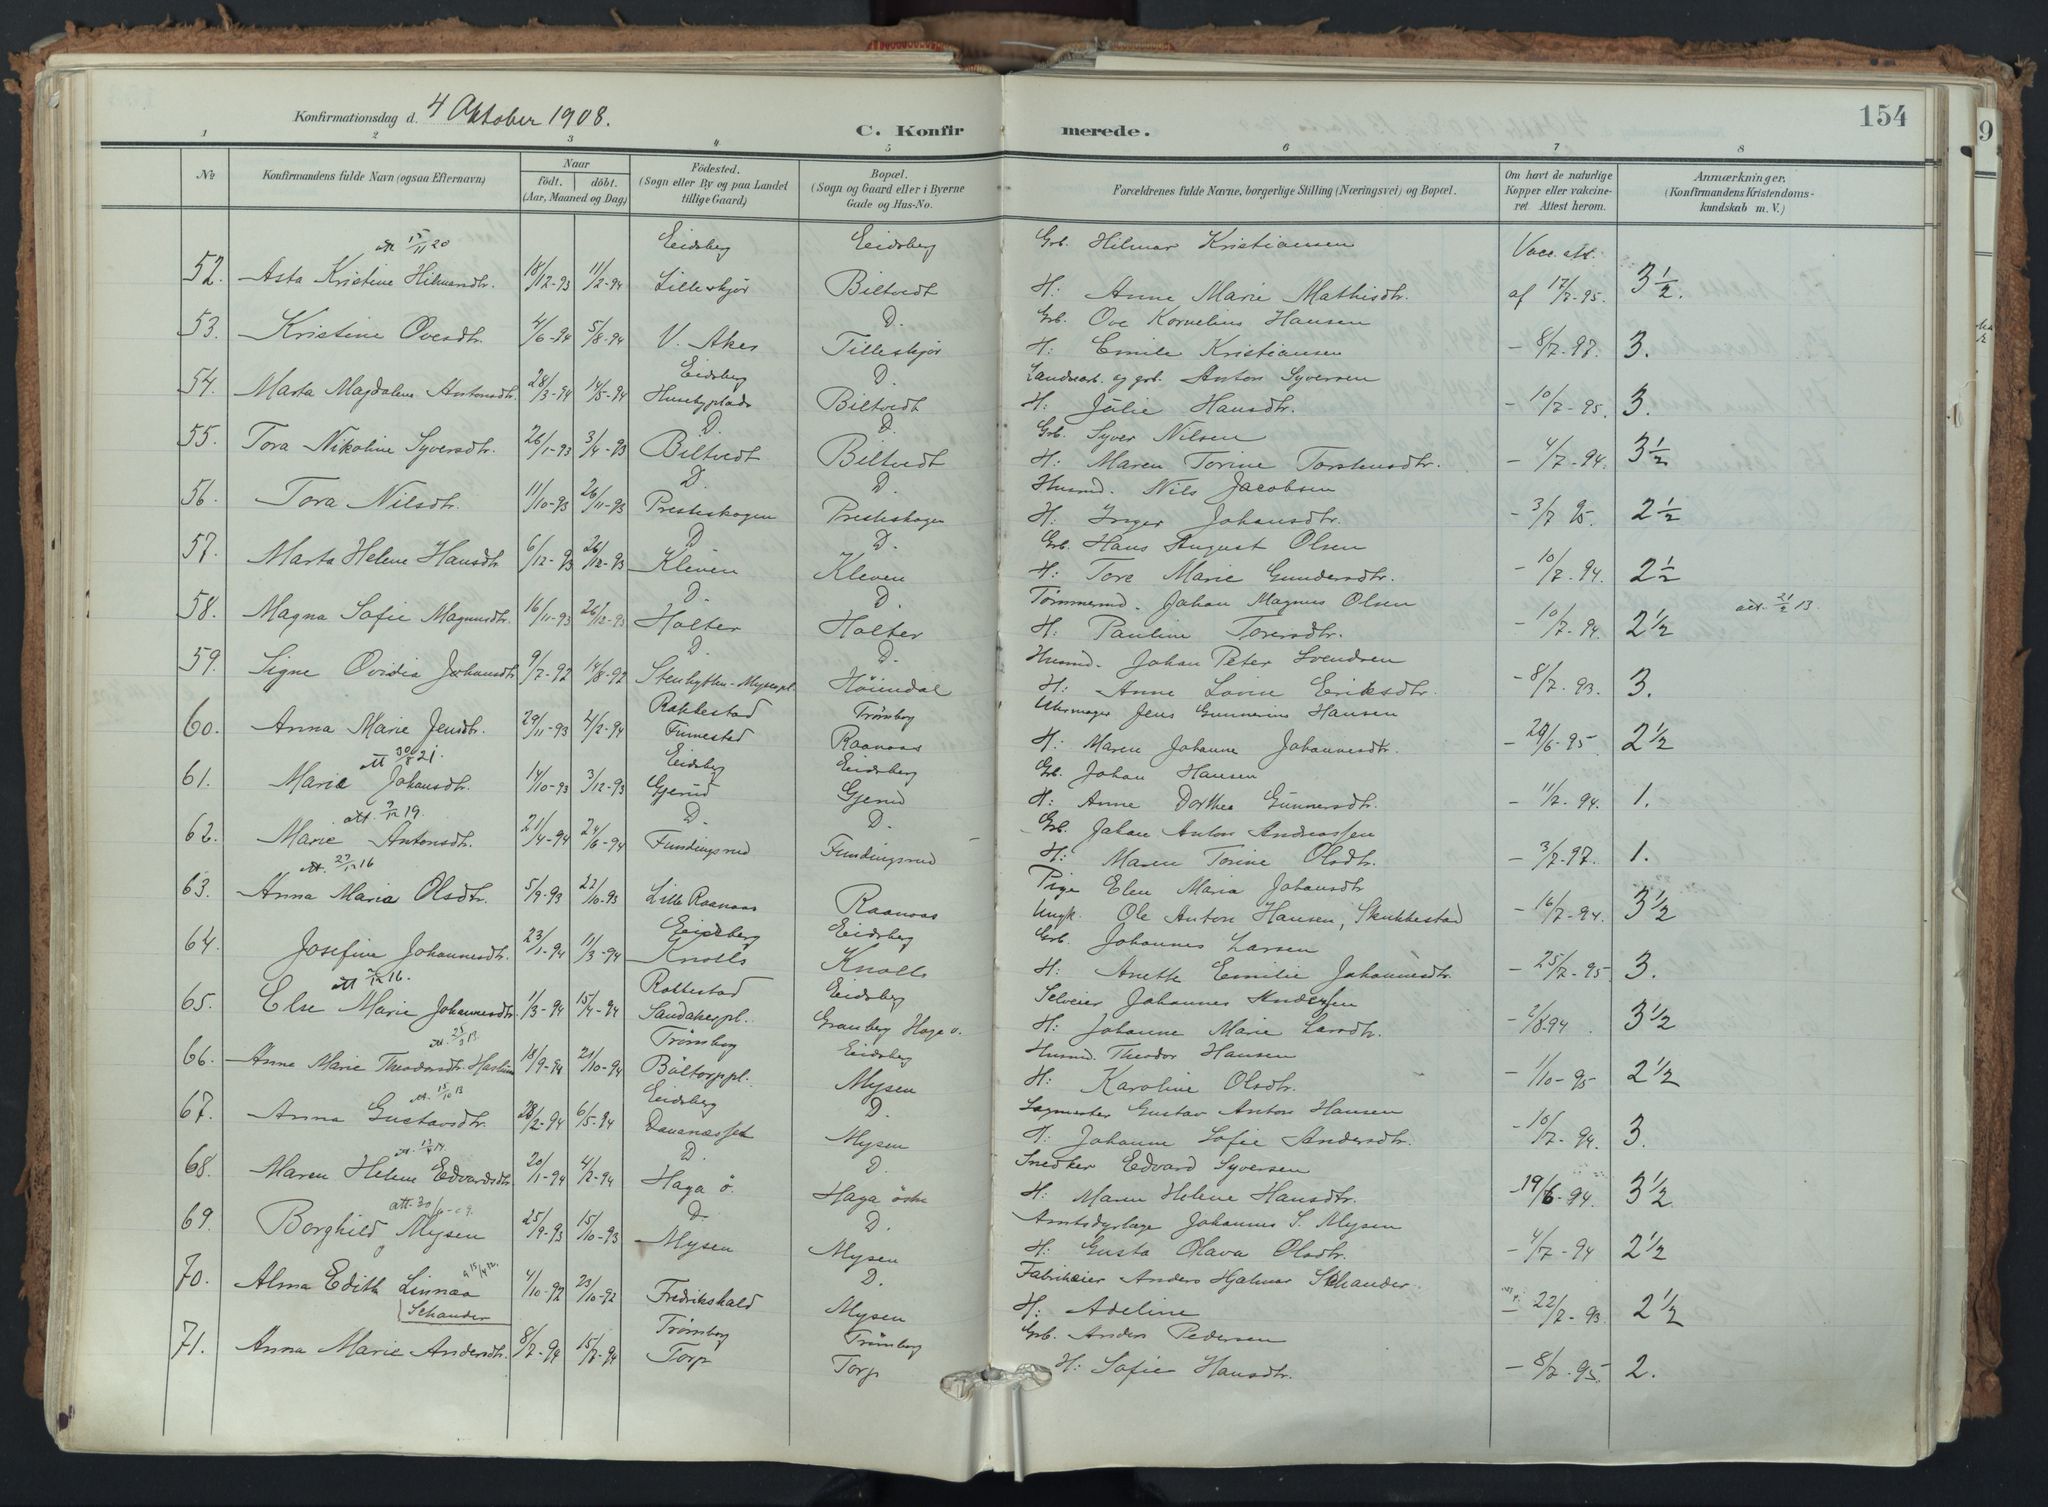 Konfirmationsdag d. 4 Oktober 1908.
C. Konfir merede. 154
1 2 3 4 5 6 7 8
No
Konfirmandens fulde Navn (ogsaa Efternavn)
Naar
födt. döbt.
(Aar, Maaned og Dag)
Födested.
(Sogn eller By og paa Landet
tillige Gaard)
Bopæl.
(Sogn og Gaard eller i Byerne
Gade og Hus-No.
Forældrenes fulde Navne, borgerlige Stilling (Næringsvei) og Bopæl.
Om havt de naturlige
Kopper eller vakcine-
ret Attest herom.
Anmærkninger.
(Konfirmandens Kristendoms-
kundskab m. V.)
att 15/11 20 Eidsberg Eidsberg Grb. Hilmar Kristiansen Vacc. att.
52. Asta Kristine Hilmarsdtr. 18/12-93 11/2-94 Lilleskjör Biltvedt H: Anne Marie Mathisdtr. af 17/7-95. 3 1/2.
D. Grb. Ove Kornelius Hansen
53. Kristine Ovesdtr. 4/6-94 5/8-94 V. Aker Lilleskjör H: Emilie Kristiansen - 8/7-97. 3.
Eidsberg D. Landvark. og grb. Anton Syversen
54. Marta Magdalene Antonsdtr. 28/3-94 14/5-94 Husebyplads Biltvedt H: Julie Hansdtr. - 10/7-95. 3.
D. D. Grb. Syver Nilsen
55. Tora Nikoline Syversdtr. 26/1-93 3/4-93 Biltvedt Biltvedt H: Maren Torine Torstensdtr. - 4/7-94. 3 1/2
D. D. Husmd. Nils Jacobsen
56. Tora Nilsdtr. 11/10-93 26/11-93 Presteskogen Presteskogen H: Inger Johansdtr. - 3/7 95. 2 1/2
D. D. Grb. Hans August Olsen
57. Marta Helene Hansdtr. 6/12-93 26/12-93 Kleven Kleven H: Tora Marie Gundersdtr. - 10/7-94. 2 1/2
D. D. Tømmermd. Johan Magnus Olsen
58. Magna Sofie Magnusdtr. 16/11-93 26/12-93 Holter Holter H: Pauline Toresdtr. - 10/7-94. 2 1/2 att. 21/2 13.
D. D. Husmd. Johan Peter Svendsen
59. Signe Ovidia Johansdtr. 9/7-92 14/8-92 Stenhytten-Mysenpl. Höiendal H: Anne Lovise Eriksdtr. - 8/7-93. 3.
Rakkestad Trømborg Uhrmager Jens Gunnerius Hansen
60. Anna Marie Jensdtr. 29/11-93 4/2-94 Finnestad Raanaas H: Maren Johanne Johannesdtr. - 29/6-95. 2 1/2
att 30/8 21. Eidsberg Eidsberg Grb. Johan Hansen
61. Marie Johansdtr. 14/10-93 3/12-93 Gjerud Gjerud H: Anne Dorthea Gunnersdtr. - 11/7-94. 1.
att. 9/12 19. D. D. Grb. Johan Anton Andreassen
62. Marie Antonsdtr. 21/4-94 24/6-94 Fundingsrud Fundingsrud H: Maren Torine Olsdtr. - 3/7-97. 1.
att. 27/12 16 Pige Elen Maria Johansdtr
63. Anna Maria Olsdtr. 5/9-93 22/10-93 Lille Raanaas Raanaas Ungk. Ole Anton Hansen, Skukkestad - 16/7-94. 3 1/2
Eidsberg Eidsberg Grb. Johannes Larsen
64. Josefine Johannesdtr. 23/1-94 11/3-94 Knolls Knolls H: Anette Emilie Johannesdtr. - 25/7-95. 3.
att 2/12 16. Rakkestad Eidsberg Selveier Johannes Andersen
65. Else Marie Johannesdtr. 1/3-94 15/4-94 Sandakerpl. Granberg Haga v. H: Johanne Marie Larsdtr. - 2/8-94. 3 1/2
Trømborg Eidsberg Husmd. Theodor Hansen
66. Anna Marie Theodorsdtr. 18/9-94 21/10-94 Böltorppl. Mysen H: Karoline Olsdtr. - 1/10-95 2 1/2
att. 15/10 13 Eidsberg D. Sagmester Gustav Anton Hansen
67. Anna Gustavsdtr. 28/2-94 6/5-94 Mysen H: Johanne Sofie Andersdtr. - 10/7-94. 3.
D. D. Snedker Edvard Syversen
68. Maren Helene Edvardsdtr. 20/1-94 4/2-94 Haga ö. Haga östre H: Maren Helene Hansdtr. - 19/6-94 3 1/2
D. D. Johannes S. Mysen
69. Borghild Mysen 25/9-93 15/10-93 Mysen Mysen H: Gusta Olava Olsdtr. - 4/7-94 2 1/2
D. Fabrikeier Anders Hjalmar Schander.
70. Alma Edith Linnea 4/10-92 23/10-92 Fredrikshald Mysen H: Adeline - 22/7-93 2 1/2
Schander
Trømborg Trømborg Grb. Anders Pedersen
71. Anna Marie Andersdtr. 8/7-94 15/7-94 Torp Torp H: Sofie Hansdtr. - 8/7-95. 2.